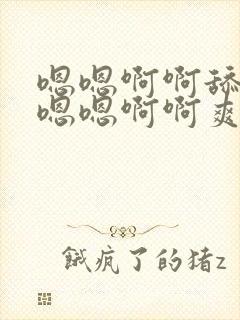 嗯嗯啊啊舔
嗯嗯啊啊爽
饿疯了的猪z